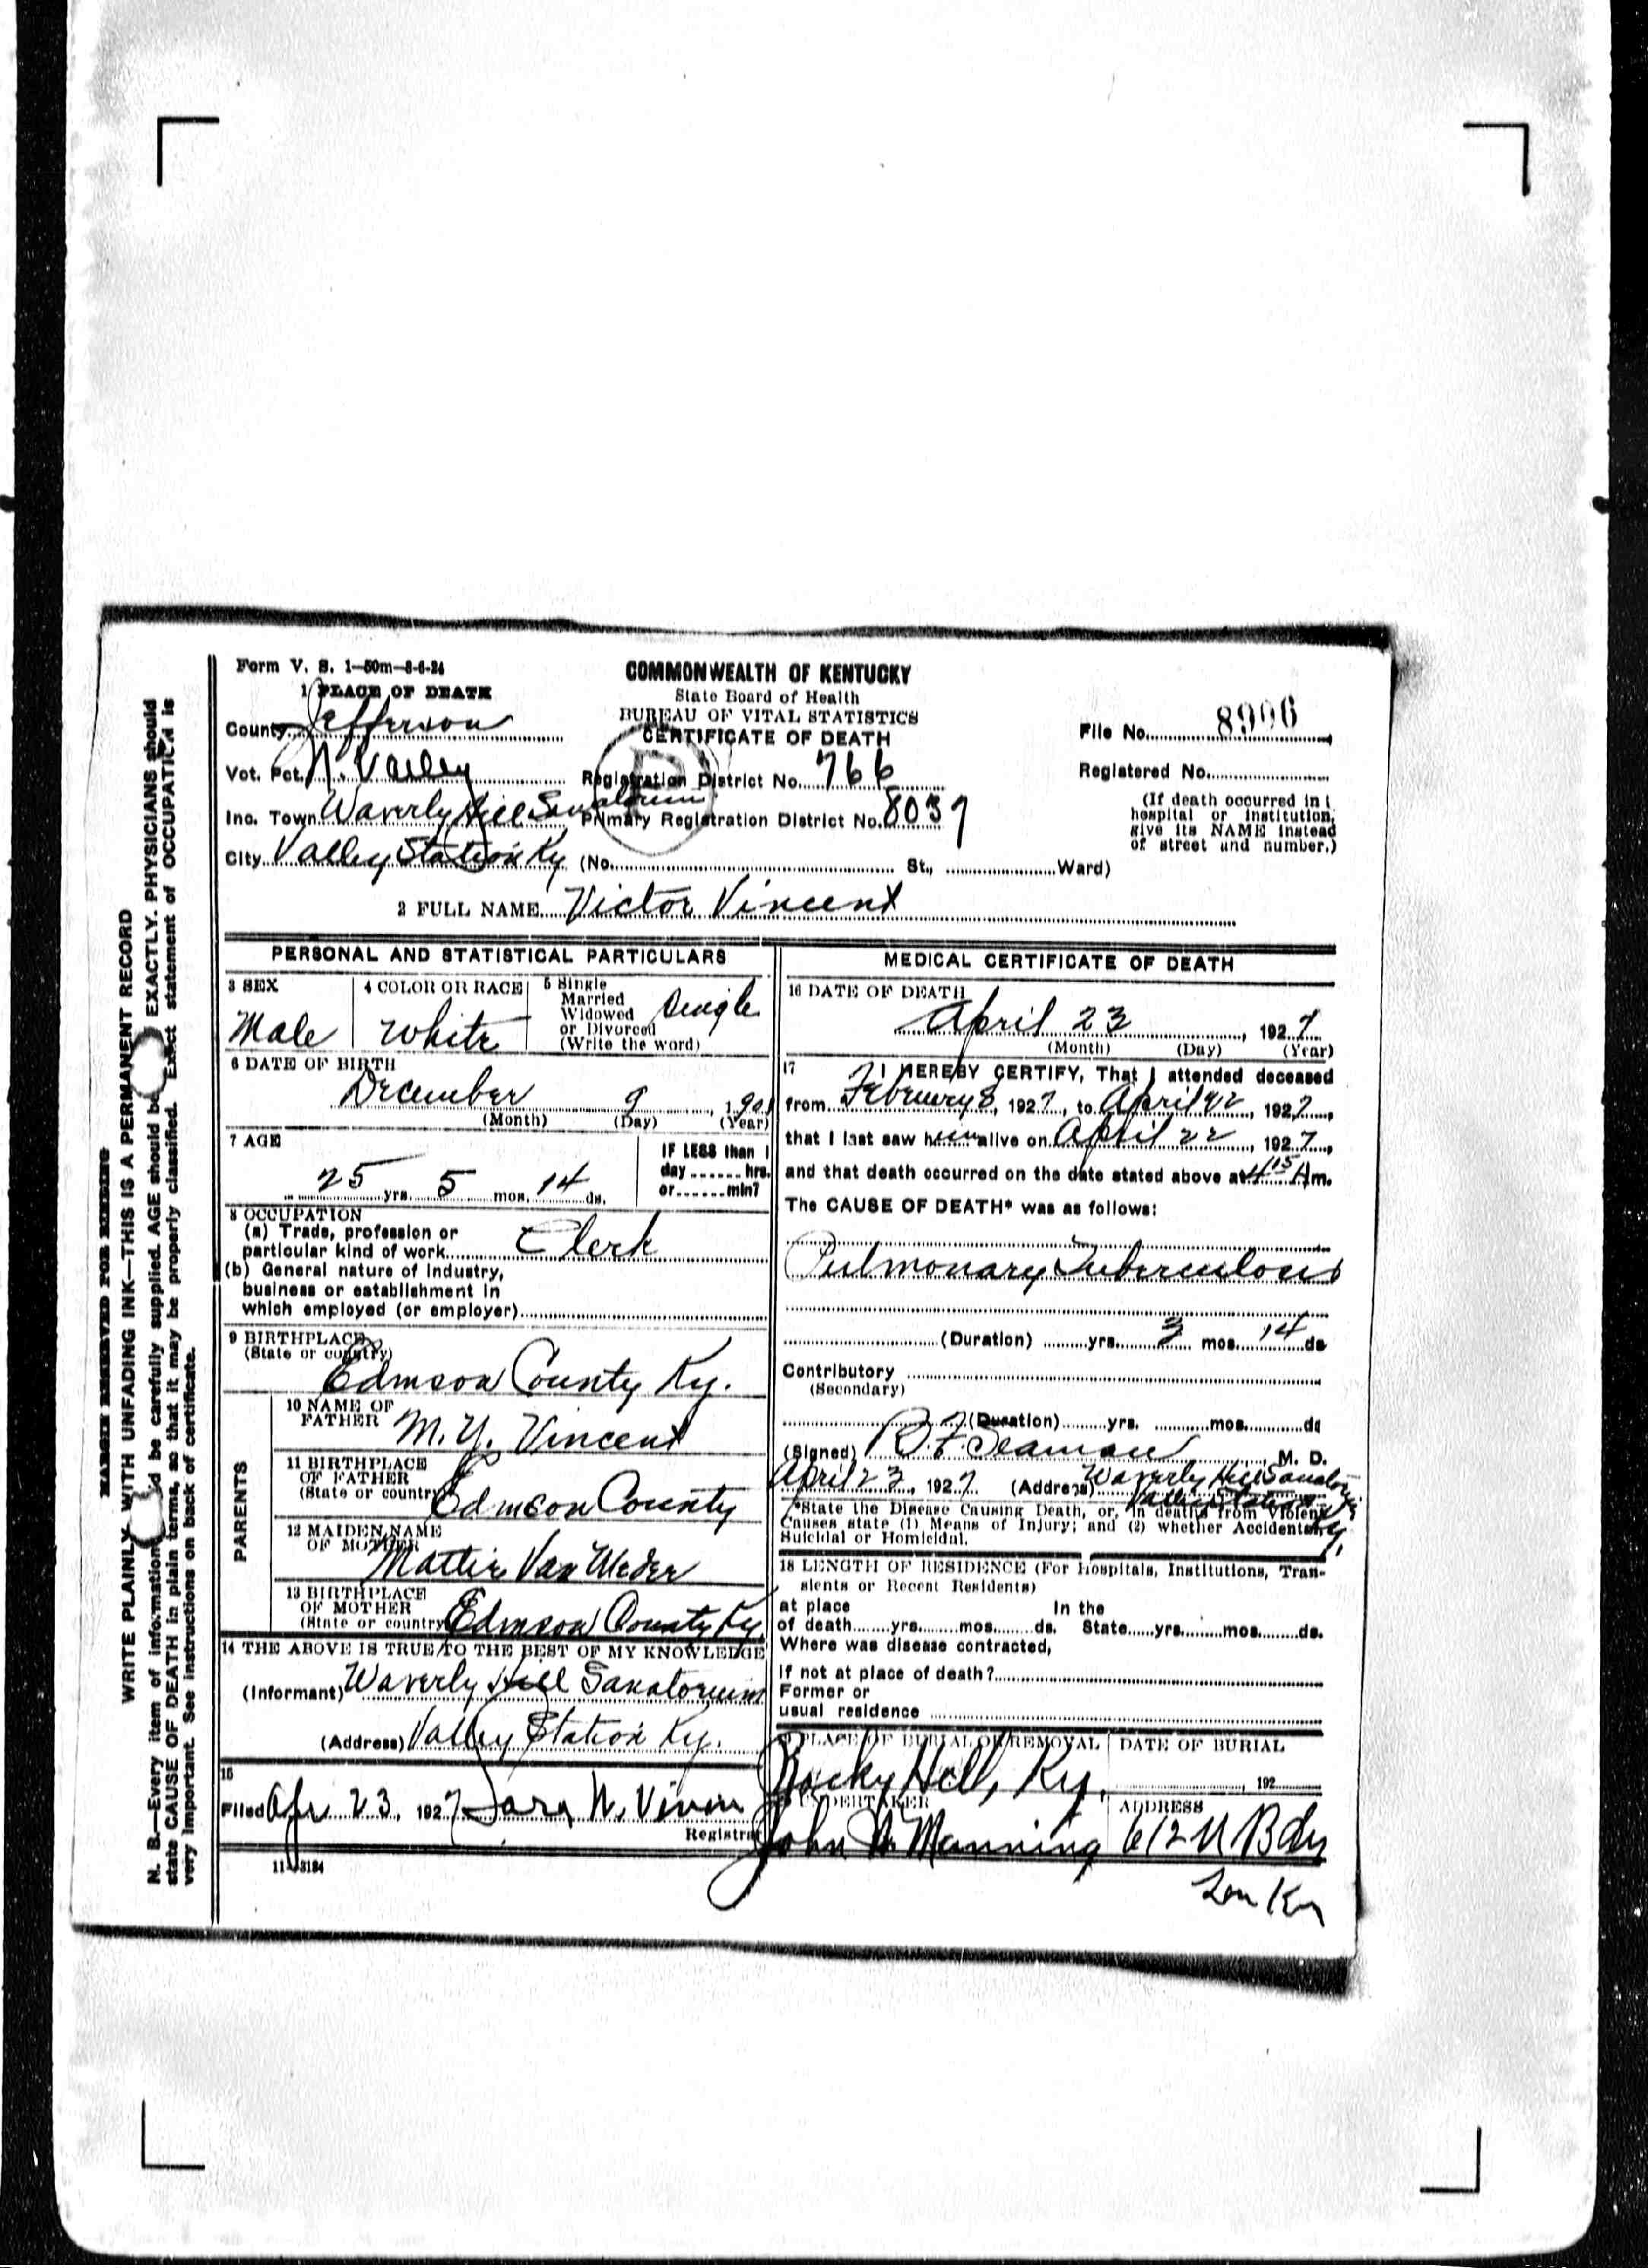 Form V. S. 1—50m—8-6-24
COMMONWEALTH OF KENTUCKY
State Board of Health
BUREAU OF VITAL STATISTICS
CERTIFICATE OF DEATH
1 PLACE OF DEATH
County Jefferson
File No. 8906
Vot. Pct. N. Valley
Registration District No. 766
Registered No.
Inc. Town Waverly Hill Sanatorium
Primary Registration District No. 8037
(If death occurred in
hospital or institution,
give its NAME instead
of street and number.)
City Valley Station Ky (No. St., Ward)
2 FULL NAME Victor Vincent
PERSONAL AND STATISTICAL PARTICULARS
3 SEX
Male
4 COLOR OR RACE
White
5 Single
Married
Widowed
or Divorced
(Write the word)
Single
6 DATE OF BIRTH
December 9, 1901
(Month) (Day) (Year)
7 AGE
25 yrs. 5 mos. 14 ds.
IF LESS than 1
day hrs.
or min?
8 OCCUPATION
(a) Trade, profession or
particular kind of work Clerk
(b) General nature of industry,
business or establishment in
which employed (or employer)
9 BIRTHPLACE
(State or country)
Edmson County Ky.
PARENTS
10 NAME OF
FATHER M. Y. Vincent
11 BIRTHPLACE
OF FATHER
(State or country) Edmson County
12 MAIDEN NAME
OF MOTHER
Mattie Van Meder
13 BIRTHPLACE
OF MOTHER
(State or country) Edmson County Ky.
14 THE ABOVE IS TRUE TO THE BEST OF MY KNOWLEDGE
(Informant) Waverly Hill Sanatorium
(Address) Valley Station Ky.
15
Filed Apr 23, 1927 Sara N. Vivin
Registrar
11—3184
MEDICAL CERTIFICATE OF DEATH
16 DATE OF DEATH
April 23, 1927
(Month) (Day) (Year)
17 I HEREBY CERTIFY, That I attended deceased
from February 8, 1927, to April 22, 1927,
that I last saw him alive on April 22, 1927,
and that death occurred on the date stated above at 4 15 A m.
The CAUSE OF DEATH* was as follows:
Pulmonary Tuberculosis
(Duration) yrs. 3 mos. 14 ds
Contributory
(Secondary)
(Duration) yrs. mos. ds
(Signed) B. F. Seaman M. D.
April 23, 1927 (Address) Waverly Hill Sanatorium
Valley Station Ky.
*State the Disease Causing Death, or, in deaths from Violent
Causes state (1) Means of Injury; and (2) whether Accidental,
Suicidal or Homicidal.
18 LENGTH OF RESIDENCE (For Hospitals, Institutions, Tran-
sients or Recent Residents)
at place In the
of death yrs. mos. ds. State yrs. mos. ds.
Where was disease contracted,
If not at place of death?
Former or
usual residence
PLACE OF BURIAL OR REMOVAL
DATE OF BURIAL
Rocky Hill, Ky.
, 192
UNDERTAKER
ADDRESS
John Manning 612 W Bdy
Lou Ky
MARGIN RESERVED FOR BINDING
WRITE PLAINLY WITH UNFADING INK—THIS IS A PERMANENT RECORD
N. B.—Every item of information should be carefully supplied. AGE should be EXACTLY. PHYSICIANS should
state CAUSE OF DEATH in plain terms, so that it may be properly classified. Exact statement of OCCUPATION is
very important. See instructions on back of certificate.